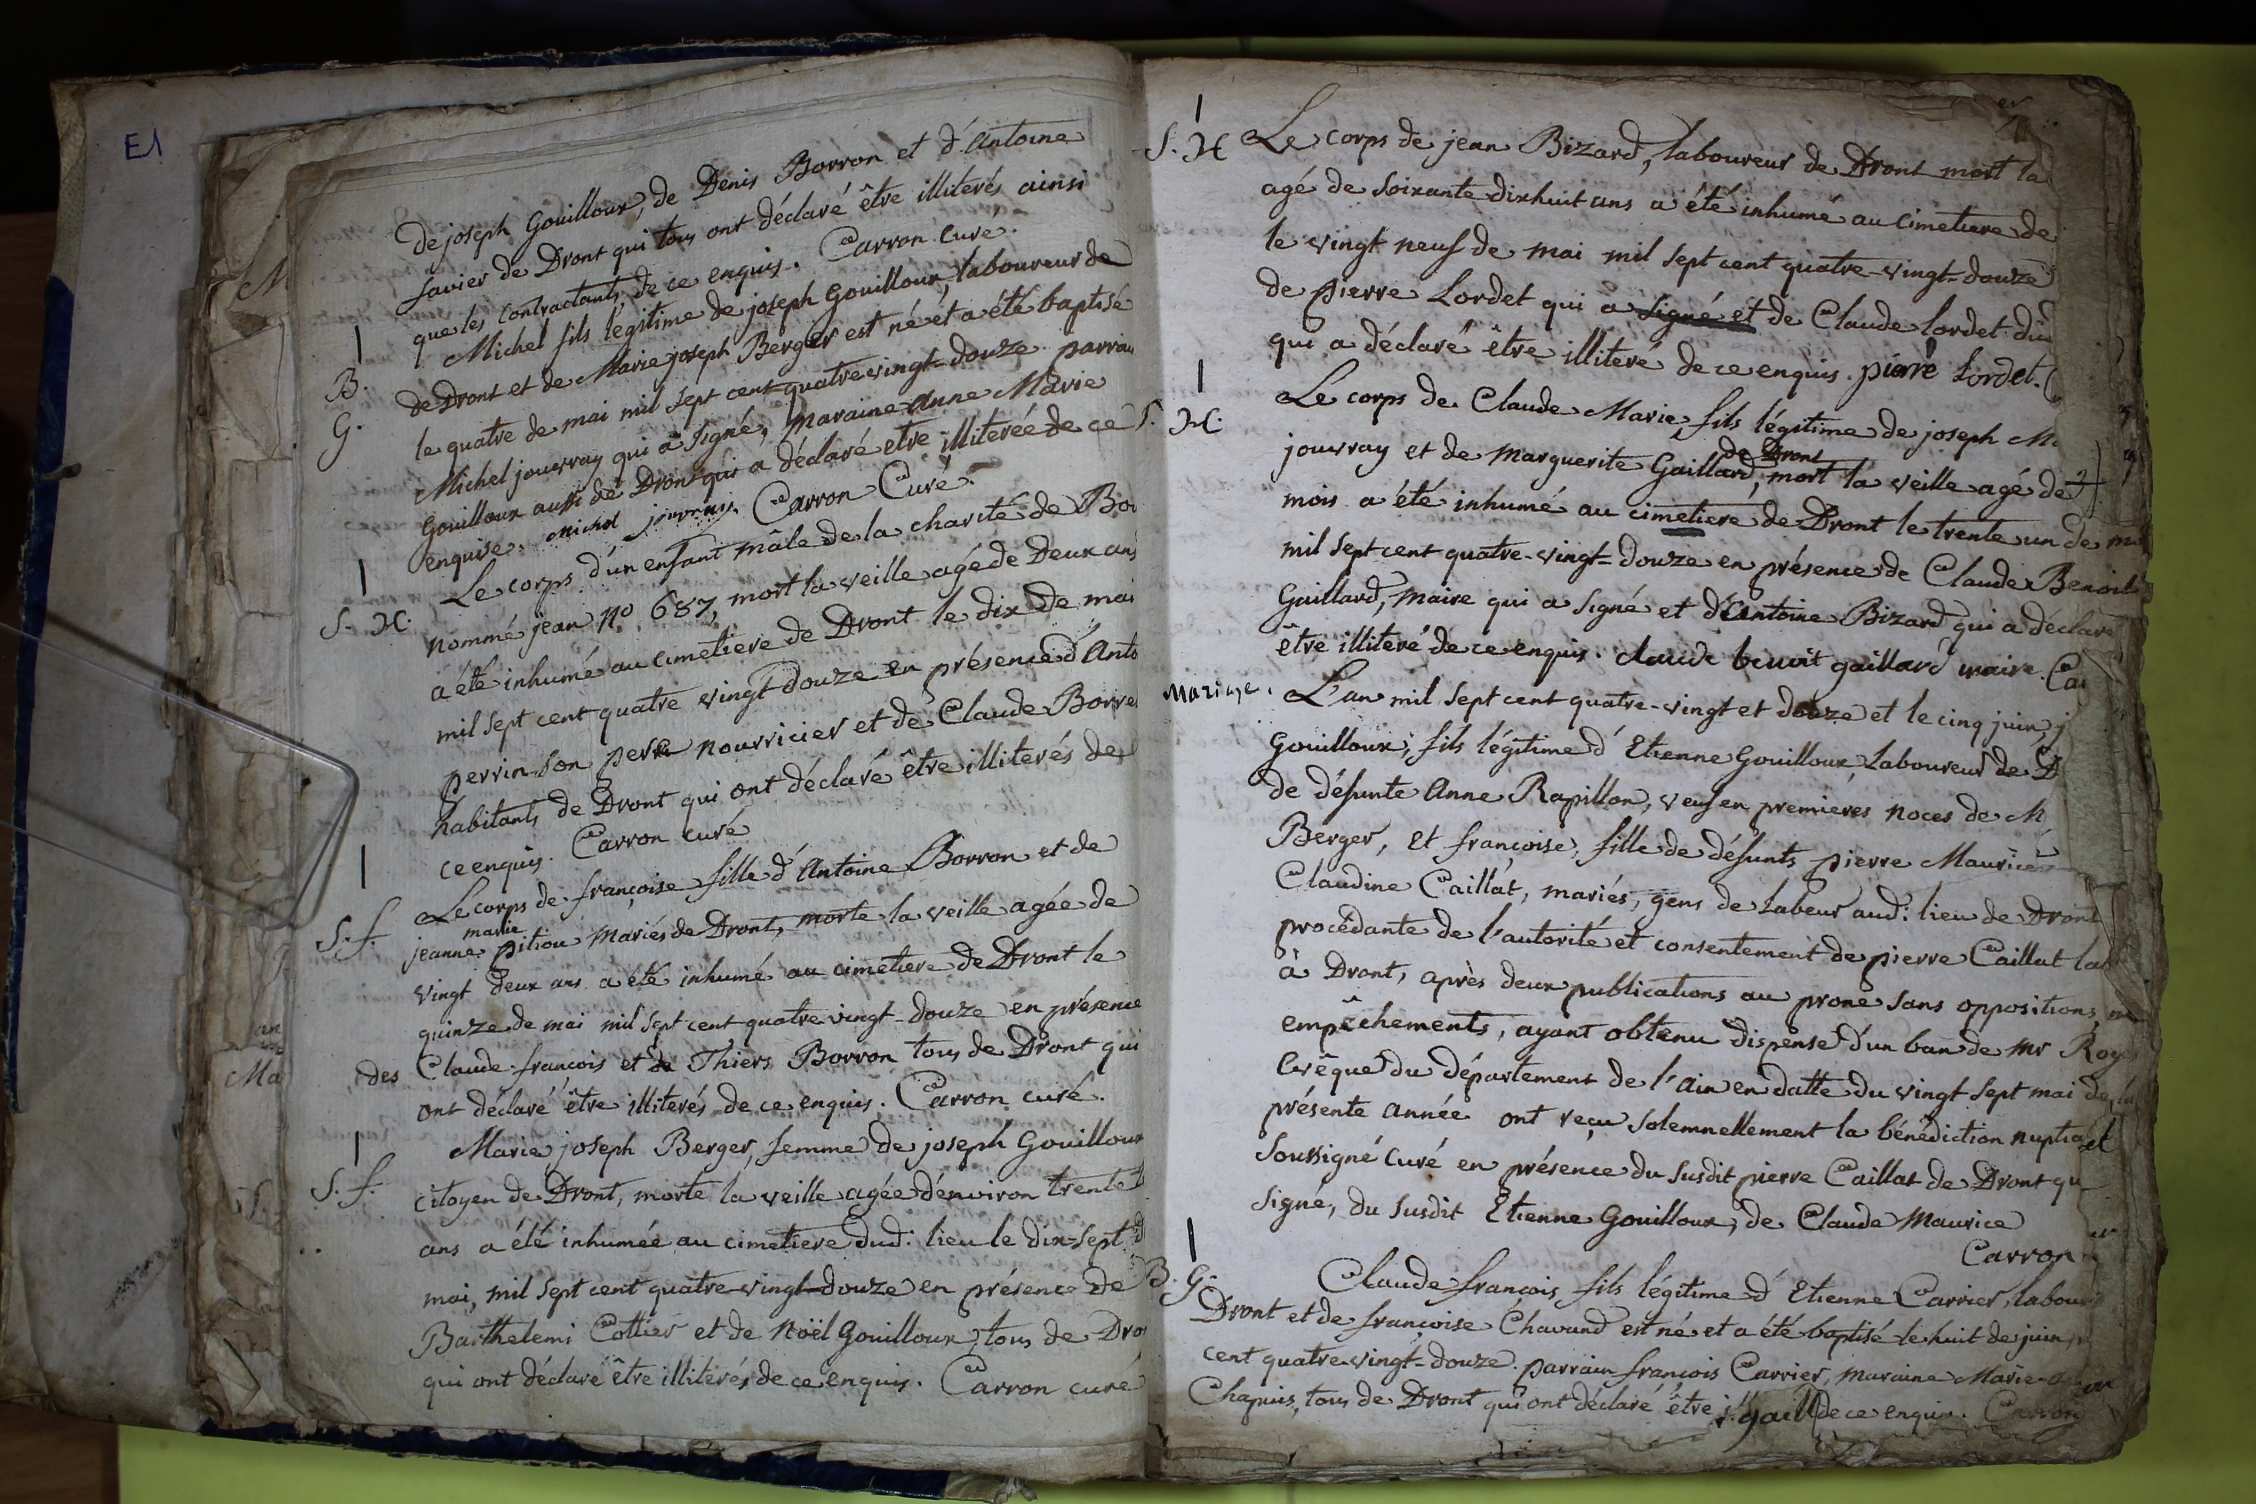 E1
de joseph Gouilloux, de Denis Borron et d'Antoine
Savier de Dront qui tous ont déclaré être illiterés ainsi
que les contractants, de ce enquis. Carron curé.
B. G.
Michel fils légitime de joseph Gouilloux, laboureur de
de Dront et de Marie joseph Berger est né et a été baptisé
le quatre de mai mil sept cent quatre vingt-douze parrai
Michel jouvray qui a signé, maraine Anne Marie
Gouilloux aussi de Dront qui a déclaré etre illiterée de ce
enquise. michel jouvray Carron Curé.
S. H.
Le corps d'un enfant mâle de la charité de Bou
nommé jean no 687, mort la veille agé de Deux ans
a été inhumé au cimetiere de Dront le dix de mai
mil sept cent quatre vingt douze en présence d'Anto
perrin son pere nourricier et de Claude Borre
habitants de Dront qui ont déclaré être illiterés de
ce enquis. Carron curé
S. f.
Le corps de françoise fille d'Antoine Borron et de
jeanne marie pitiou mariés de Dront, morte la veille agée de
vingt deux ans a été inhumé au cimetiere de Dront le
quinze de mai mil sept cent quatre vingt-douze en présence
des Claude françois et de Thiers Borron tous de Dront qui
ont déclaré être illiterés de ce enquis. Carron curé.
S. f.
Marie joseph Berger, femme de joseph Gouilloux
citoyen de Dront, morte la veille agée d'environ trente
ans a été inhumée au cimetiere dud: lieu le dix-sept d
mai, mil sept cent quatre-vingt-douze en présence de
Barthelemi Cottier et de Noël Gouilloux, tous de Dro
qui ont déclaré être illiterés de ce enquis. Carron curé
S. H
Le corps de jean Bizard, laboureur de Dront mort la
agé de soixante dixhuit ans a été inhumé au cimetiere de
le vingt neuf de mai mil sept cent quatre-vingt-douze
de pierre Lordet qui a signé et de Claude Lordet du
qui a déclaré être illiteré de ce enquis. pierre Lordet. C
S. H.
Le corps de Claude Marie, fils légitime de joseph M
jouvray et de marguerite Gaillard, de Dront mort la veille agé de
mois a été inhumé au cimetiere de Dront le trente un de m
mil sept cent quatre-vingt-douze en présence de Claude Benoit
Gaillard, maire qui a signé et d'Antoine Bizard qui a déclaré
être illiteré de ce enquis. claude benoit gaillard maire. Ca
Mariage.
L'an mil sept cent quatre-vingt et douze et le cinq juin, j
Gouilloux, fils légitime d'Etienne Gouilloux, Laboureur de D
de défunte Anne Rapillon, veuf en premieres noces de M
Berger, et françoise, fille de défunts pierre Maurice
Claudine Caillat, mariés, gens de Labeur aud: lieu de Dront
procédante de l'autorité et consentement de pierre Caillat lab
à Dront, après deux publications au prone sans oppositions
empêchements, ayant obtenu dispense d'un ban de Mr Roye
Evêque du département de l'ain en datte du vingt sept mai de
présente année ont reçu solemnellement la bénédiction nuptial
Soussigné curé en présence du susdit pierre Caillat de Dront qu
signe, du susdit Etienne Gouilloux, de Claude Maurice
Carron
B. G.
Claude françois fils légitime d'Etienne Carrier, labour
Dront et de françoise Chavand est né et a été baptisé le huit de juin
cent quatre vingt-douze. parrain françois Carrier, maraine Marie
Chapuis, tous de Dront qui ont déclaré être de ce enquis. Carron